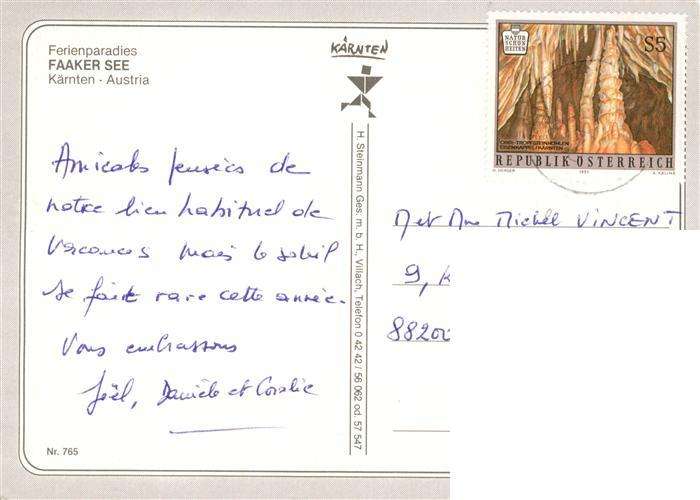 Ferienparadies
FAAKER SEE
Kärnten - Austria
KÄRNTEN
NATUR
SCHÖN
HEITEN
S5
OBIR-TROPFSTEINHÖHLEN
EISENKAPPEL/KÄRNTEN
REPUBLIK ÖSTERREICH
1991
Amicales pensées de
notre lieu habituel de
vacances mais le soleil
se fait rare cette année.
Vous embrassons
Joël, Danièle et Coralie
H. Steinmann Ges. m. b. H., Villach, Telefon 0 42 42 / 56 062 od. 57 547
M et Mme Michel VINCENT
9,
88200
Nr. 765